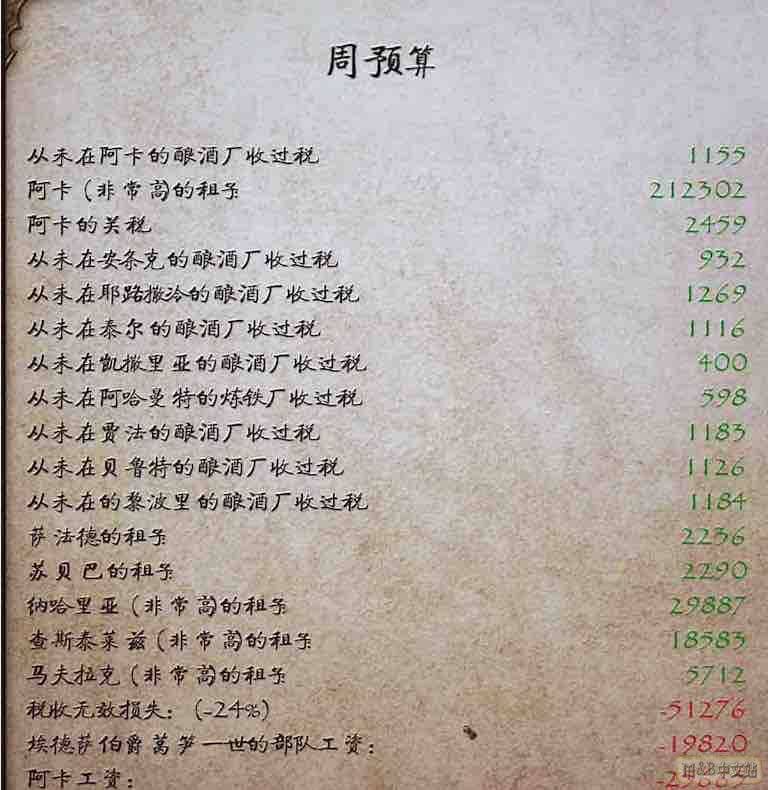 周预算
从未在阿卡的酿酒厂收过税 1155
阿卡(非常高)的租子 212302
阿卡的关税 2459
从未在安条克的酿酒厂收过税 932
从未在耶路撒冷的酿酒厂收过税 1269
从未在泰尔的酿酒厂收过税 1116
从未在凯撒里亚的酿酒厂收过税 400
从未在阿哈曼特的炼铁厂收过税 598
从未在贾法的酿酒厂收过税 1183
从未在贝鲁特的酿酒厂收过税 1126
从未在的黎波里的酿酒厂收过税 1184
萨法德的租子 2236
苏贝巴的租子 2290
纳哈里亚(非常高)的租子 29887
查斯泰莱兹(非常高)的租子 18583
马夫拉克(非常高)的租子 5712
税收无效损失：(-24%) -51276
埃德萨伯爵莴笋一世的部队工资： -19820
阿卡工资：
M&B中文站